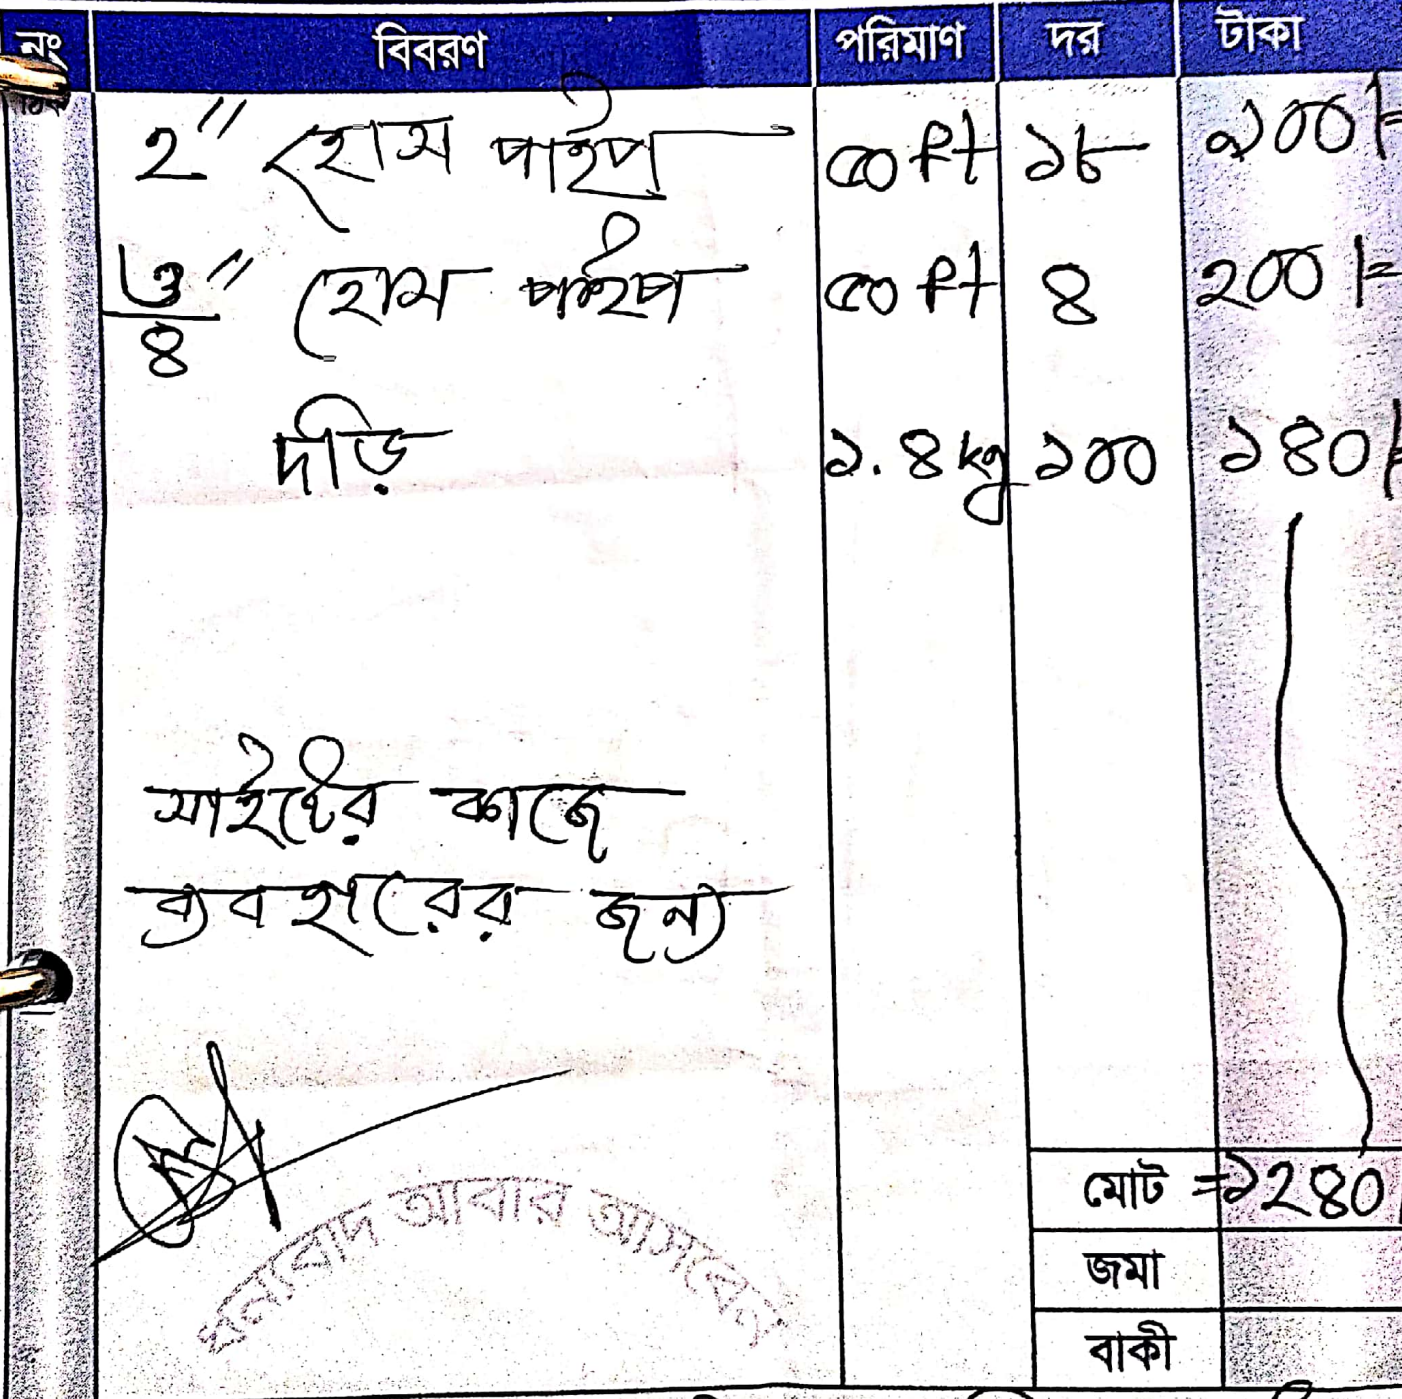 নং বিবরণ পরিমাণ দর টাকা
২" হোস পাইপ ৫০ ft ১৮ ৯০০/=
৩/৪" হোস পাইপ ৫০ ft ৪ ২০০/=
দড়ি ১.৪ kg ১০০ ১৪০/=
সাইটের কাজে
ব্যবহারের জন্য
মোট =১২৪০/
জমা
বাকী
ধন্যবাদ আবার আসবেন